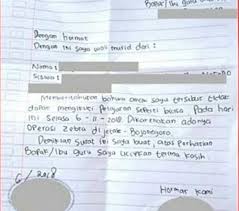 Bapak/Ibu guru
Dengan hormat
Dengan ini saya wali murid dari :
Nama :
Siswa :
Memberitahukan bahwa anak saya tersebut tidak
dapat mengikuti pelajaran seperti biasa pada hari
ini Selasa 6-11-2018 Dikarenakan adanya
Operasi Zebra di jetak - Bojonegoro.
Demikian Surat ini saya buat, atas perhatian
Bapak/Ibu guru saya ucapkan terima kasih
Hormat kami